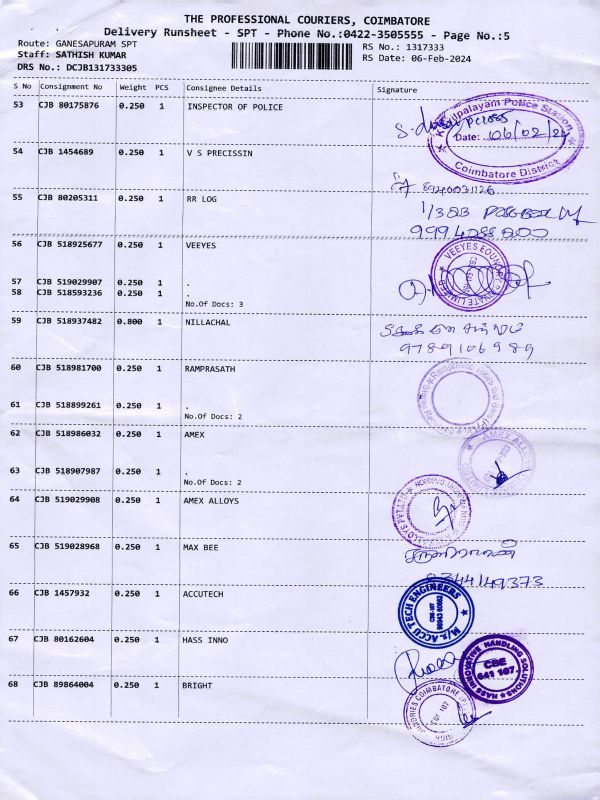 THE PROFESSIONAL COURIERS, COIMBATORE
Delivery Runsheet - SPT - Phone No.:0422-3505555 - Page No.:5
Route: GANESAPURAM SPT
Staff: SATHISH KUMAR
DRS No.: DCJB131733305
RS No.: 1317333
RS Date: 06-Feb-2024
S No Consignment No Weight PCS Consignee Details Signature
53 CJB 80175876 0.250 1 INSPECTOR OF POLICE
Police Station
Date: 06/02/24
Coimbatore District
54 CJB 1454689 0.250 1 V S PRECISSIN
8940031126
55 CJB 80205311 0.250 1 RR LOG
56 CJB 518925677 0.250 1 VEEYES
VEEYES
57 CJB 519029907 0.250 1 .
58 CJB 518593236 0.250 1 .
No.Of Docs: 3
59 CJB 518937482 0.800 1 NILLACHAL
9789106989
60 CJB 518981700 0.250 1 RAMPRASATH
61 CJB 518899261 0.250 1 .
No.Of Docs: 2
62 CJB 518986032 0.250 1 AMEX
AMEX ALLOYS
63 CJB 518907987 0.250 1 .
No.Of Docs: 2
64 CJB 519029908 0.250 1 AMEX ALLOYS
65 CJB 519028968 0.250 1 MAX BEE
8344149373
66 CJB 1457932 0.250 1 ACCUTECH
M/s. ACCU TECH ENGINEERS
67 CJB 80162604 0.250 1 HASS INNO
HASS INNOVATIVE HANDLING SOLUTIONS
CBE
641 107.
68 CJB 89864004 0.250 1 BRIGHT
COIMBATORE